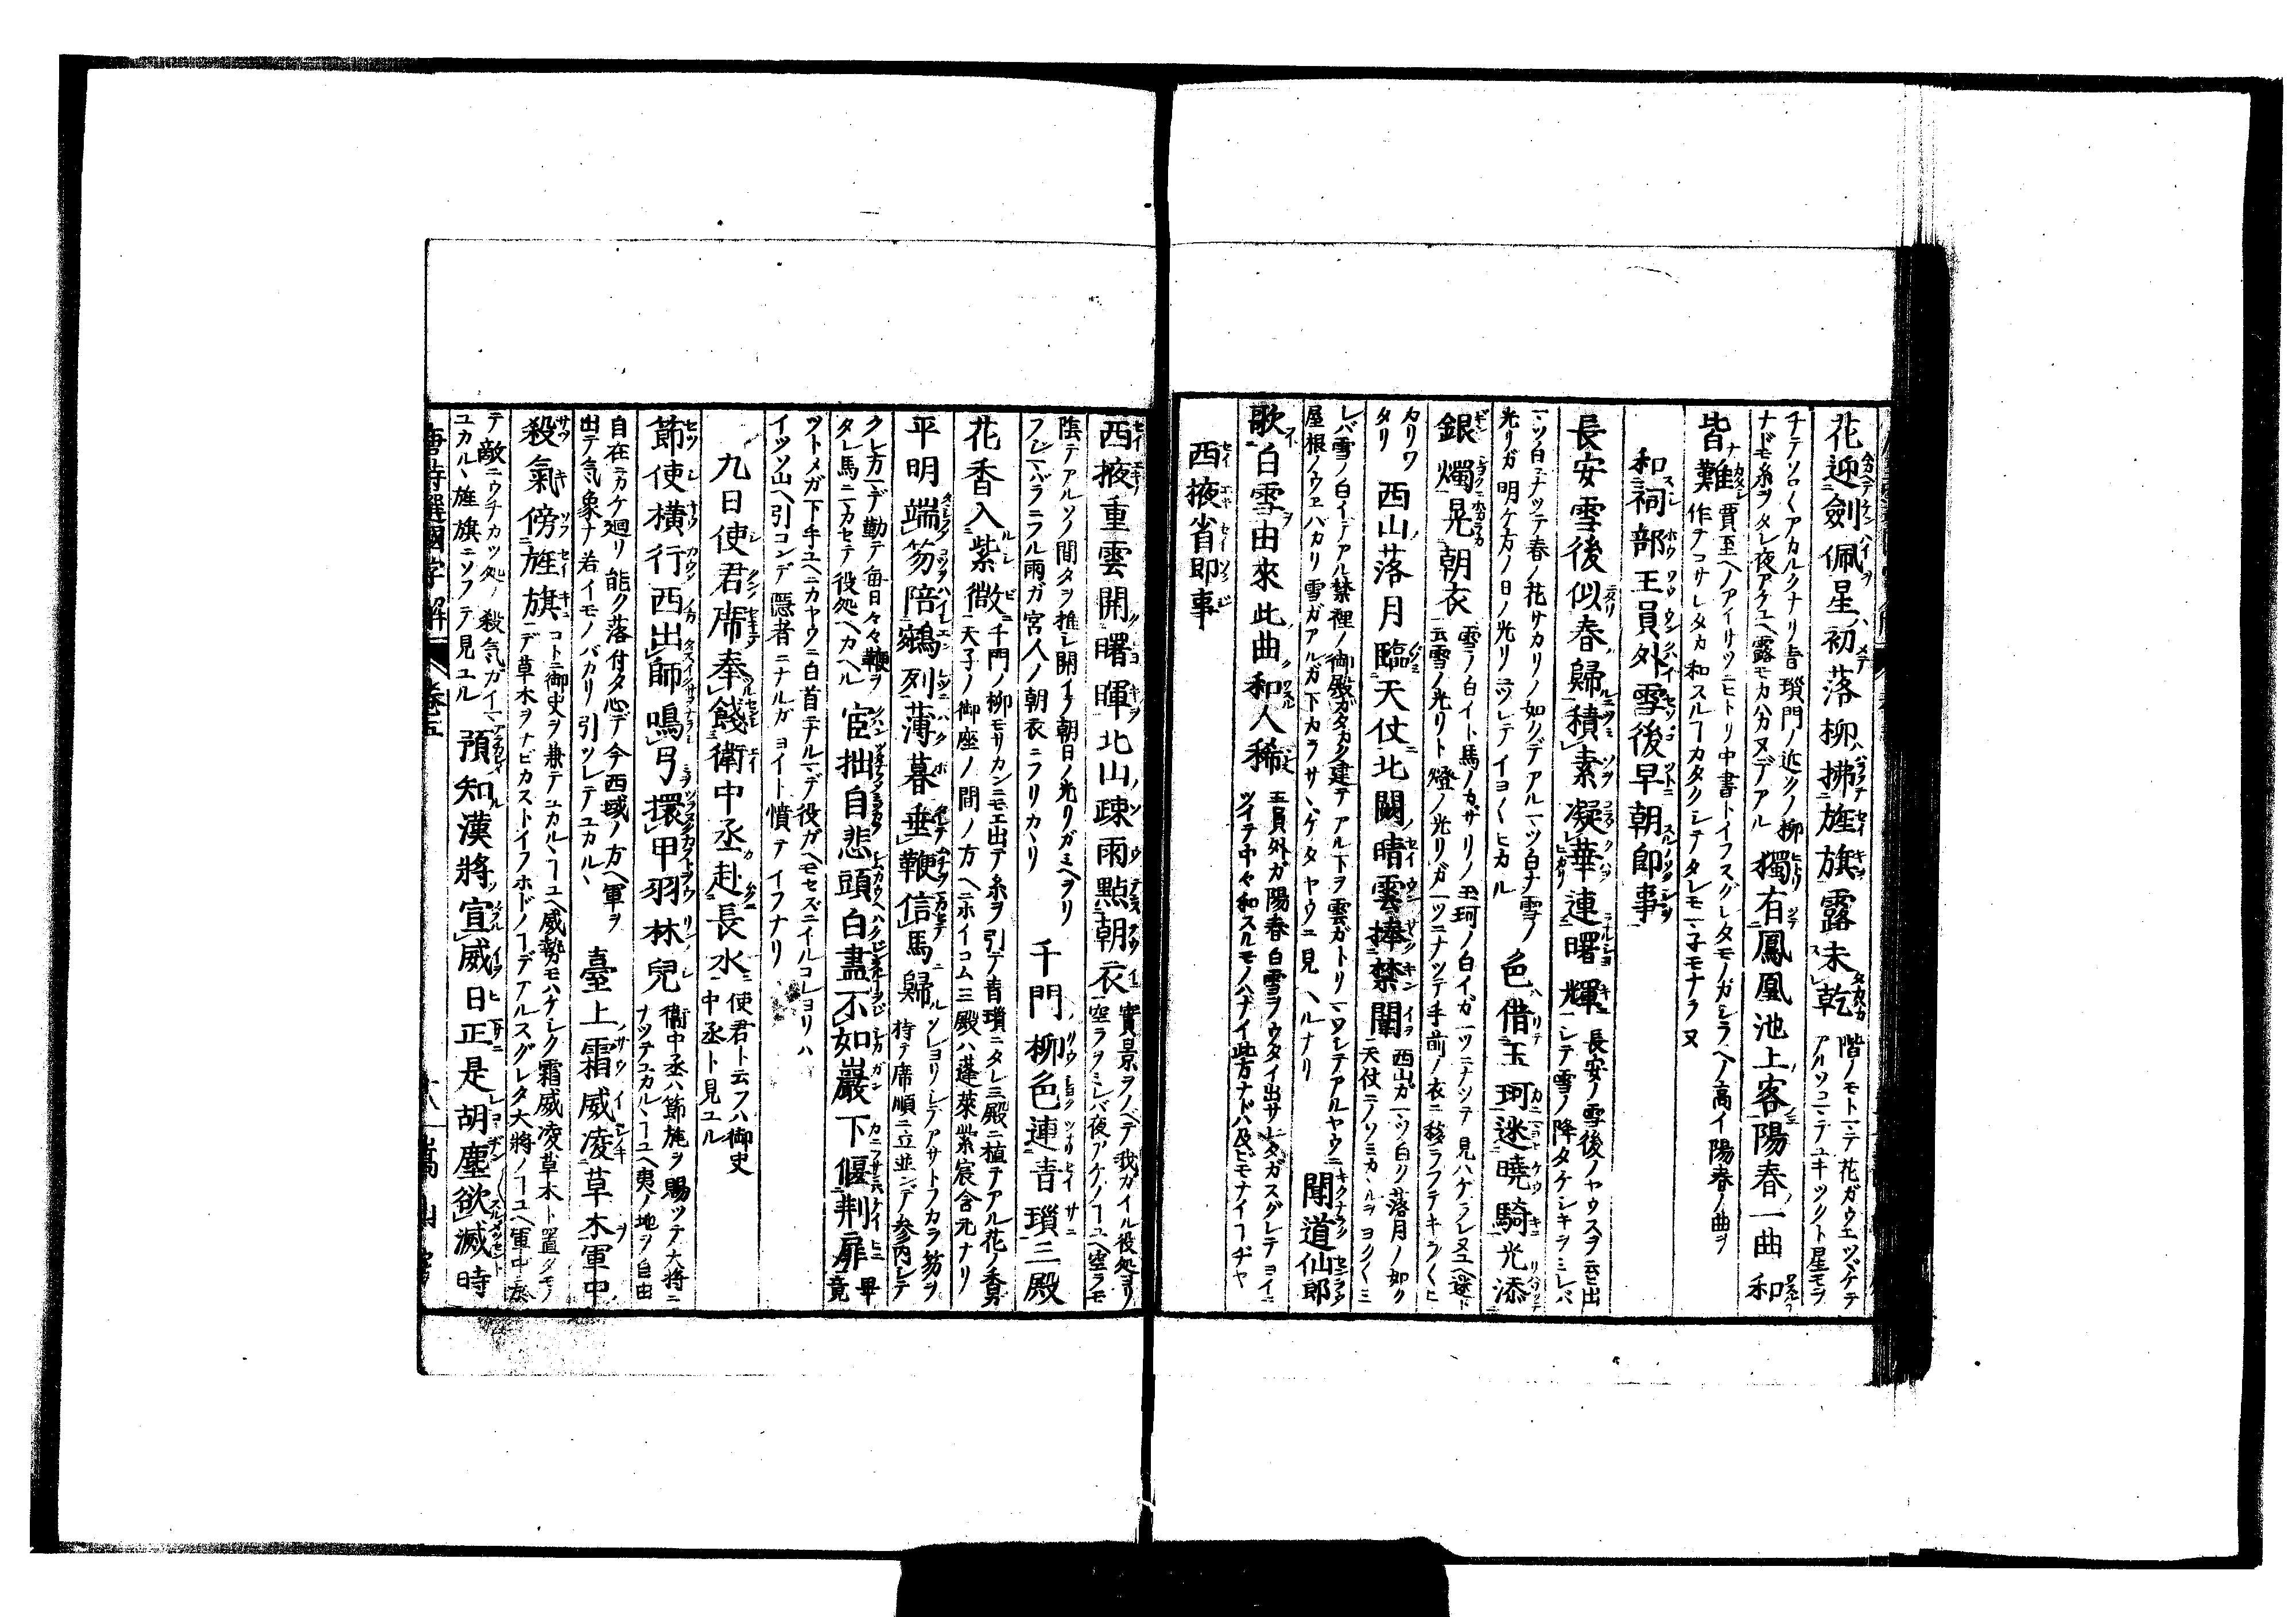 花迎劍佩星初落柳拂旌旗露未乾 階ノモトニテ花ガウエツヾケテ
ナドモ糸ヲタレ夜アケユヘ露モカハカヌデアル 獨有鳳凰池上客陽春一曲和
皆難 賈至ヘノアイサツニヒトリ中書トイフスグレタモノガシラベノ高イ陽春ノ曲ヲ
作テコサレタカ和スルヿカタクシテタレモ
和祠部王員外雪後早朝即事
長安雪後似春歸積素凝華連曙輝 長安ノ雪後ノヤウスヲ云出
光リガ明ケ方ノ日ノ光リニツレテイヨ〱ヒカル 色借玉珂迷曉騎光添
銀燭晃朝衣 雪ノ白イト馬ノカザリノ玉珂ノ白イガ一ツニナツテ見ハケラレヌユヘ迷ト
云雪ノ光リト燈ノ光リガ一ツニナツテ手前ノ衣ニ移ラフテキラ〱ヒ
カリワタリ 西山落月臨天仗北闕晴雲捧禁闈 西山ガ一ツ白ク落月ノ如ク
レバ雪ノ白イデアル禁裡ノ御殿ガタカク建テアル下ヲ雲ガトリ
屋根ノウヱバカリ雪ガアルガ下カラサヽゲタヤウニ見ヘルナリ 聞道仙郎
歌白雪由來此曲和人稀 王員外ガ陽春白雪ヲウタイ出サレタガスグレテヨイニ
ツイテ中々和スルモノハナイ此方ナドハ及ビモナイヿヂヤ
西掖省即事
西掖重雲開曙暉北山疎雨點朝衣 實景ヲノベテ我ガイル役処ヨリ
空ラヲミレバ夜アケノヿユヘ空ラモ
陰テアルソノ間タヲ推シ開イテ朝日ノ光リガミヘヲリ
フシハバラニフル雨ガ宮人ノ朝衣ニフリカヽリ 千門柳色連青瑣三殿
花香入紫微 千門ノ柳モサカンニモエ出テ糸ヲ引テ青瑣ニタレ三殿ニ植テアル花ノ香
天子ノ御座ノ間ノ方ヘニホイコム三殿ハ蓬萊紫宸含元ナリ
平明端笏陪鵷列薄暮垂鞭信馬歸 ソレヨリシテアサトフカラ笏ヲ
持テ席順ニ立並ンデ参内シテ
クレ方マデ勤テ毎日々々鞭ヲ
タレ馬ニマカセテ役処ヘカヘル 宦拙自悲頭白盡不如巖下偃荆扉 畢竟
ツトメガ下手ユヘニカヤウニ白首ニナルマデ役ガヘモセズニイルコレヨリハ
イツソ山ヘ引コンデ隠者ニナルガヨイト憤テイフナリ
九日使君席奉餞衛中丞赴長水 使君ト云フハ御史
中丞ト見ユル
節使橫行西出師鳴弓擐甲羽林兒 衛中丞ハ節旄ヲ賜ツテ大將ニ
ナツテユカルヽヿユヘ夷ノ地ヲ自由
自在ニカケ廻リ能ク落付タ心デ今西域ノ方ヘ軍ヲ
出テ気象ナ若イモノバカリ引ツレテユカルヽ 臺上霜威凌草木軍中
殺氣傍旌旗 コトニ御史ヲ兼テユカルヽヿユヘ威勢モハゲシク霜威凌草木ト置タモノ
デ草木ヲナビカストイフホドノヿデアルスグレタ大將ノヿユヘ軍中ニ
テ敵ニウチカツタ処ノ殺気ガ
ユカルヽ旌旗ニソフテ見ユル 預知漢將宣威日正是胡塵欲滅時
唐詩選國字解 卷五 十八 嵩山